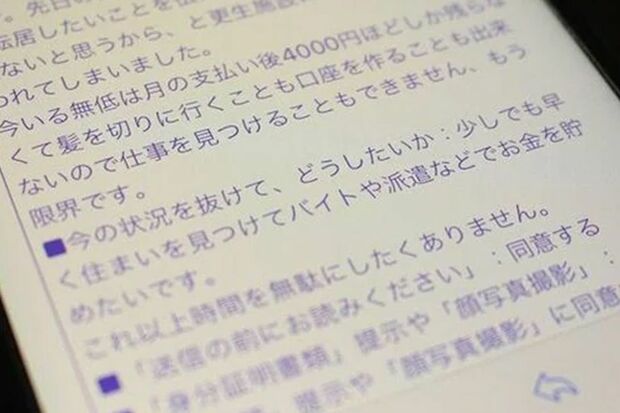 転居したいことを伝
ないと思うから、と更生施設
われてしまいました。
今いる無低は月の支払い後4000円ほどしか残らな
くて髪を切りに行くことも口座を作ることも出来
ないので仕事を見つけることもできません、もう
限界です。
■今の状況を抜けて、どうしたいか：少しでも早
く住まいを見つけてバイトや派遣などでお金を貯
めたいです。
これ以上時間を無駄にしたくありません。
■「送信の前にお読みください」：同意する
■「身分証明書類」提示や「顔写真撮影」：
提示や「顔写真撮影」に同意